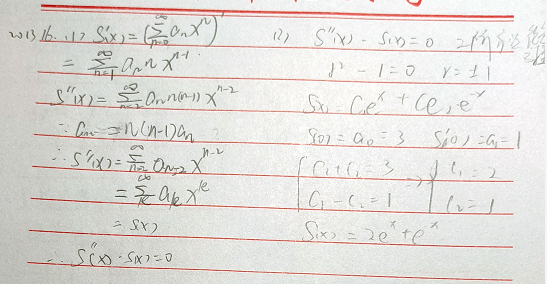 2013.16. (1) S'(x) = (∑_{n=0}^{∞} aₙxⁿ)'
= ∑_{n=1}^{∞} aₙ n xⁿ⁻¹
S''(x) = ∑_{n=2}^{∞} aₙ n(n-1) xⁿ⁻²
∵ aₙ₋₂ = n(n-1)aₙ
∴ S''(x) = ∑_{n=2}^{∞} aₙ₋₂ xⁿ⁻²
= ∑_{k}^{∞} aₖ xᵏ
= S(x)
∴ S''(x) - S(x) = 0
(2) S''(x) - S(x) = 0
r² - 1 = 0 r = ±1
S(x) = C₁eˣ + C₂e⁻ˣ
S(0) = a₀ = 3 S'(0) = a₁ = 1
{ C₁ + C₂ = 3 ⇒ { C₁ = 2
C₁ - C₂ = 1 C₂ = 1
S(x) = 2eˣ + e⁻ˣ